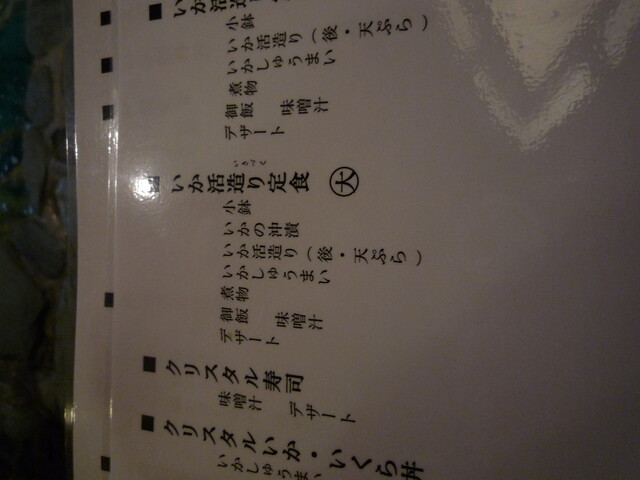 いか活造
小鉢
いか活造り（後・天ぷら）
いかしゅうまい
煮物
御飯　味噌汁
デザート
いか活造り定食 大
いけづく
小鉢
いかの沖漬
いか活造り（後・天ぷら）
いかしゅうまい
煮物
御飯　味噌汁
デザート
クリスタル寿司
味噌汁　デザート
クリスタルいか・いくら丼
いかしゅうまい